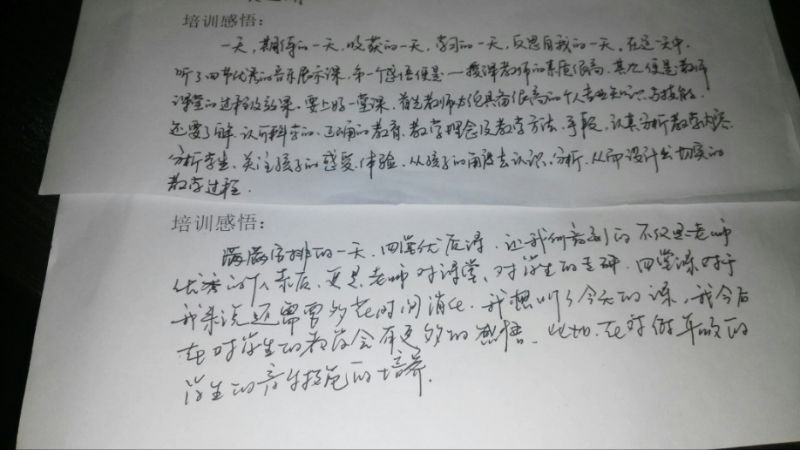 培训感悟:
一天,期待的一天,收获的一天,学习的一天,反思自我的一天。在这一天中,
听了四节优秀的音乐展示课,第一个感悟便是——授课教师的素质很高,其次便是教师
课堂的过程及效果。要上好一堂课,首先教师必须具备很高的个人专业知识与技能,
还要了解、认可科学的、正确的教育、教学理念及教学方法、手段,认真分析教学内容、
分析学生,关注孩子的感受、体验,从孩子的角度去认识、分析,从而设计出切实的
教学过程。
培训感悟:
满满安排的一天,四堂优质课,让我们看到的不仅是老师
优秀的个人素质,更是老师对课堂、对学生的专研。四堂课对于
我来说还需要多花时间消化。我想听了今天的课,我今后
在对学生的教育会有更多的感悟。比如,在对低年级的
学生的音乐技能的培养。